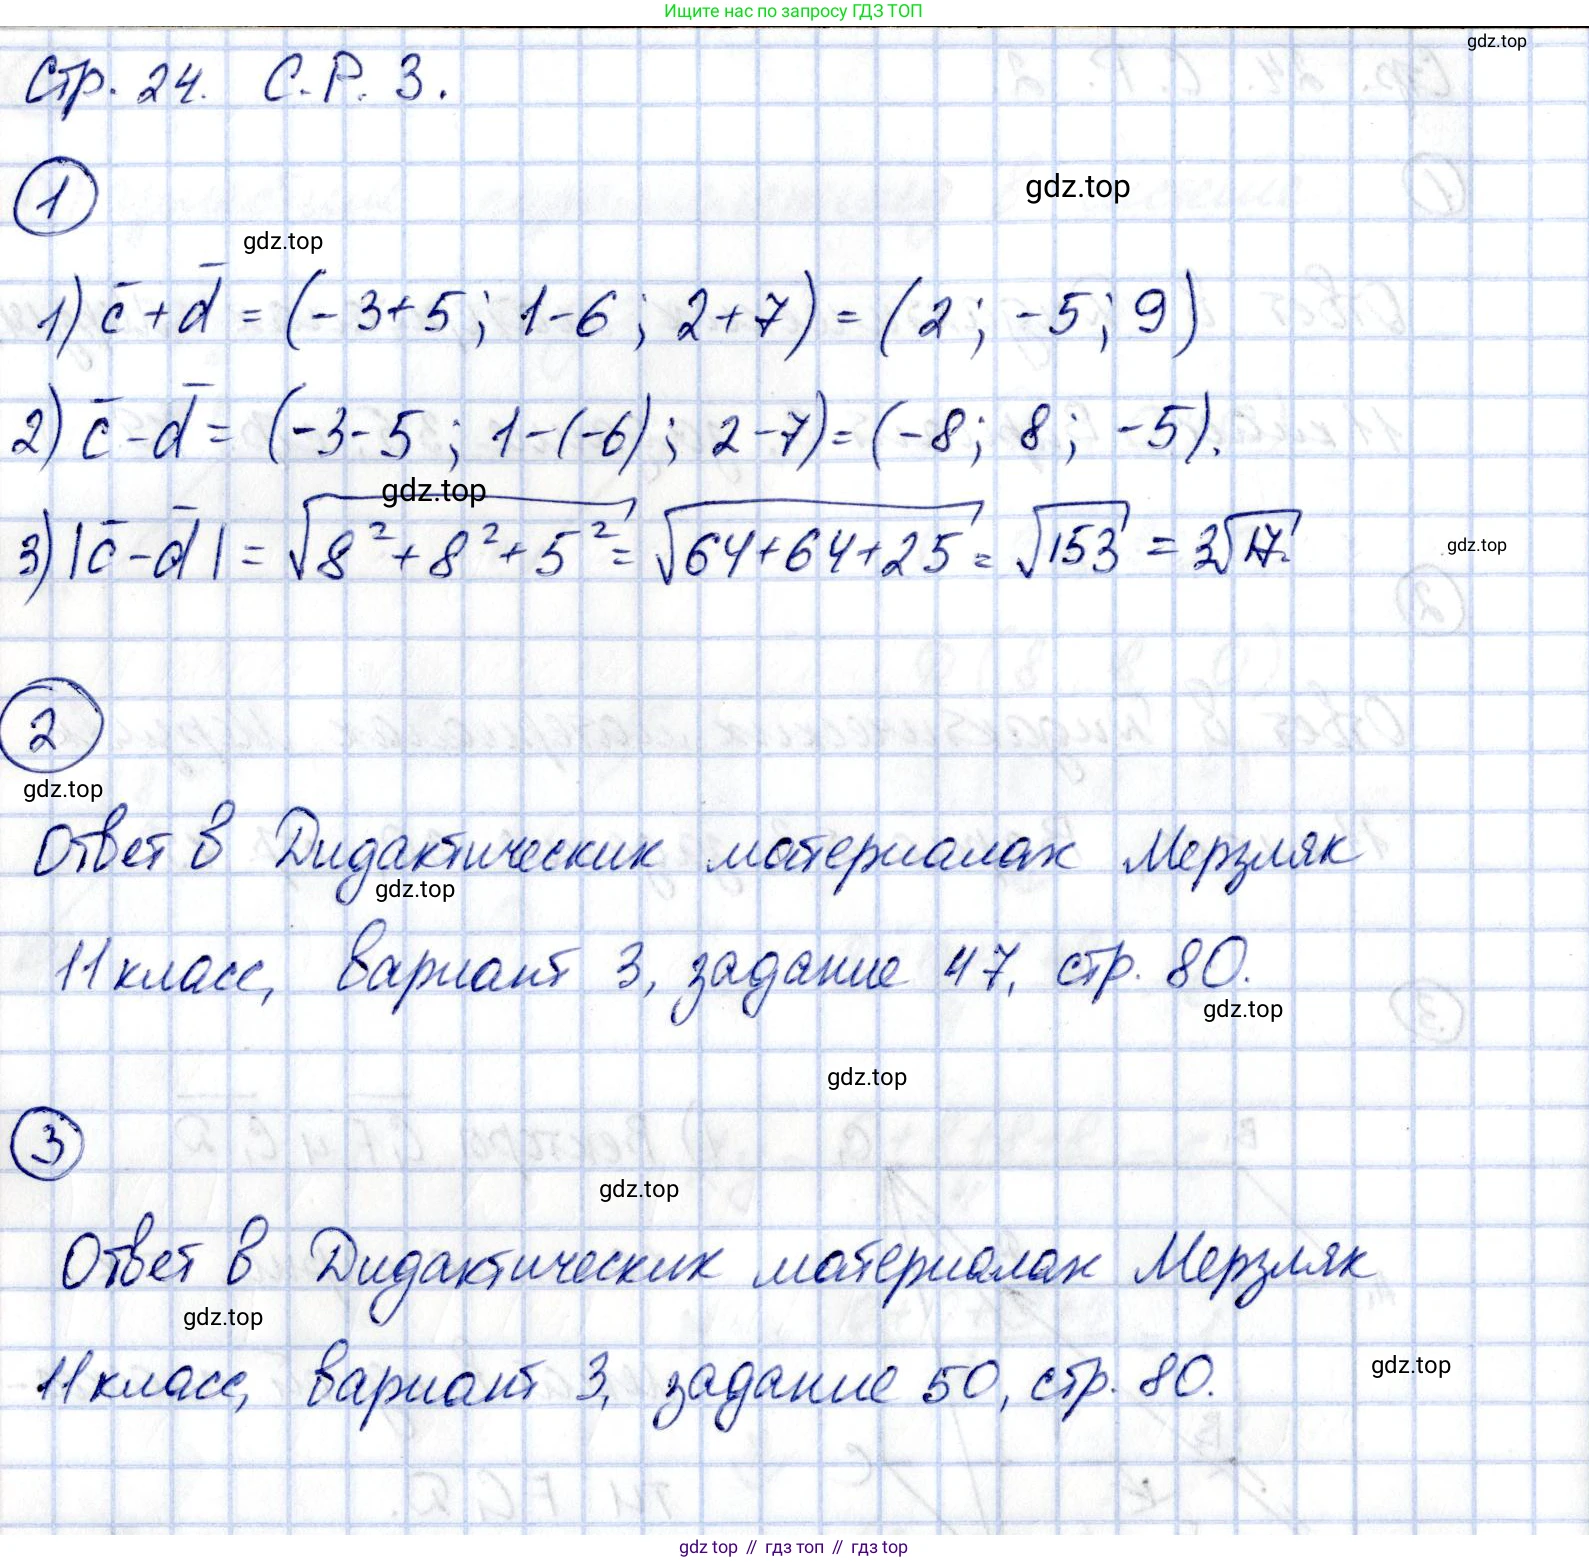 Ищите нас по запросу ГДЗ ТОП
gdz.top
Стр. 24. С.Р. 3.
1
gdz.top
gdz.top
1) c̄ + d̄ = (-3+5; 1-6; 2+7) = (2; -5; 9)
2) c̄ - d̄ = (-3-5; 1-(-6); 2-7) = (-8; 8; -5).
gdz.top
3) |c̄ - d̄| = √8²+8²+5² = √64+64+25 = √153 = 3√17.
gdz.top
2
gdz.top
Ответ в Дидактических материалах Мерзляк
gdz.top
11 класс, вариант 3, задание 47, стр. 80.
gdz.top
gdz.top
3
gdz.top
Ответ в Дидактических материалах Мерзляк
gdz.top
11 класс, вариант 3, задание 50, стр. 80.
gdz.top
gdz top // гдз топ // гдз top